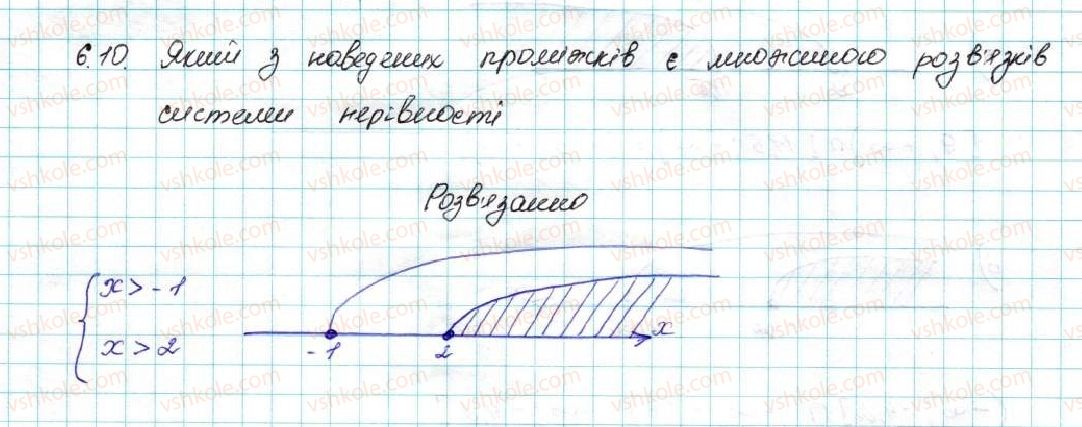 6.10. Який з наведених проміжків є множиною розв'язків
системи нерівності
Розв'язанню
x > -1
x > 2
-1 2 x
vshkole.com